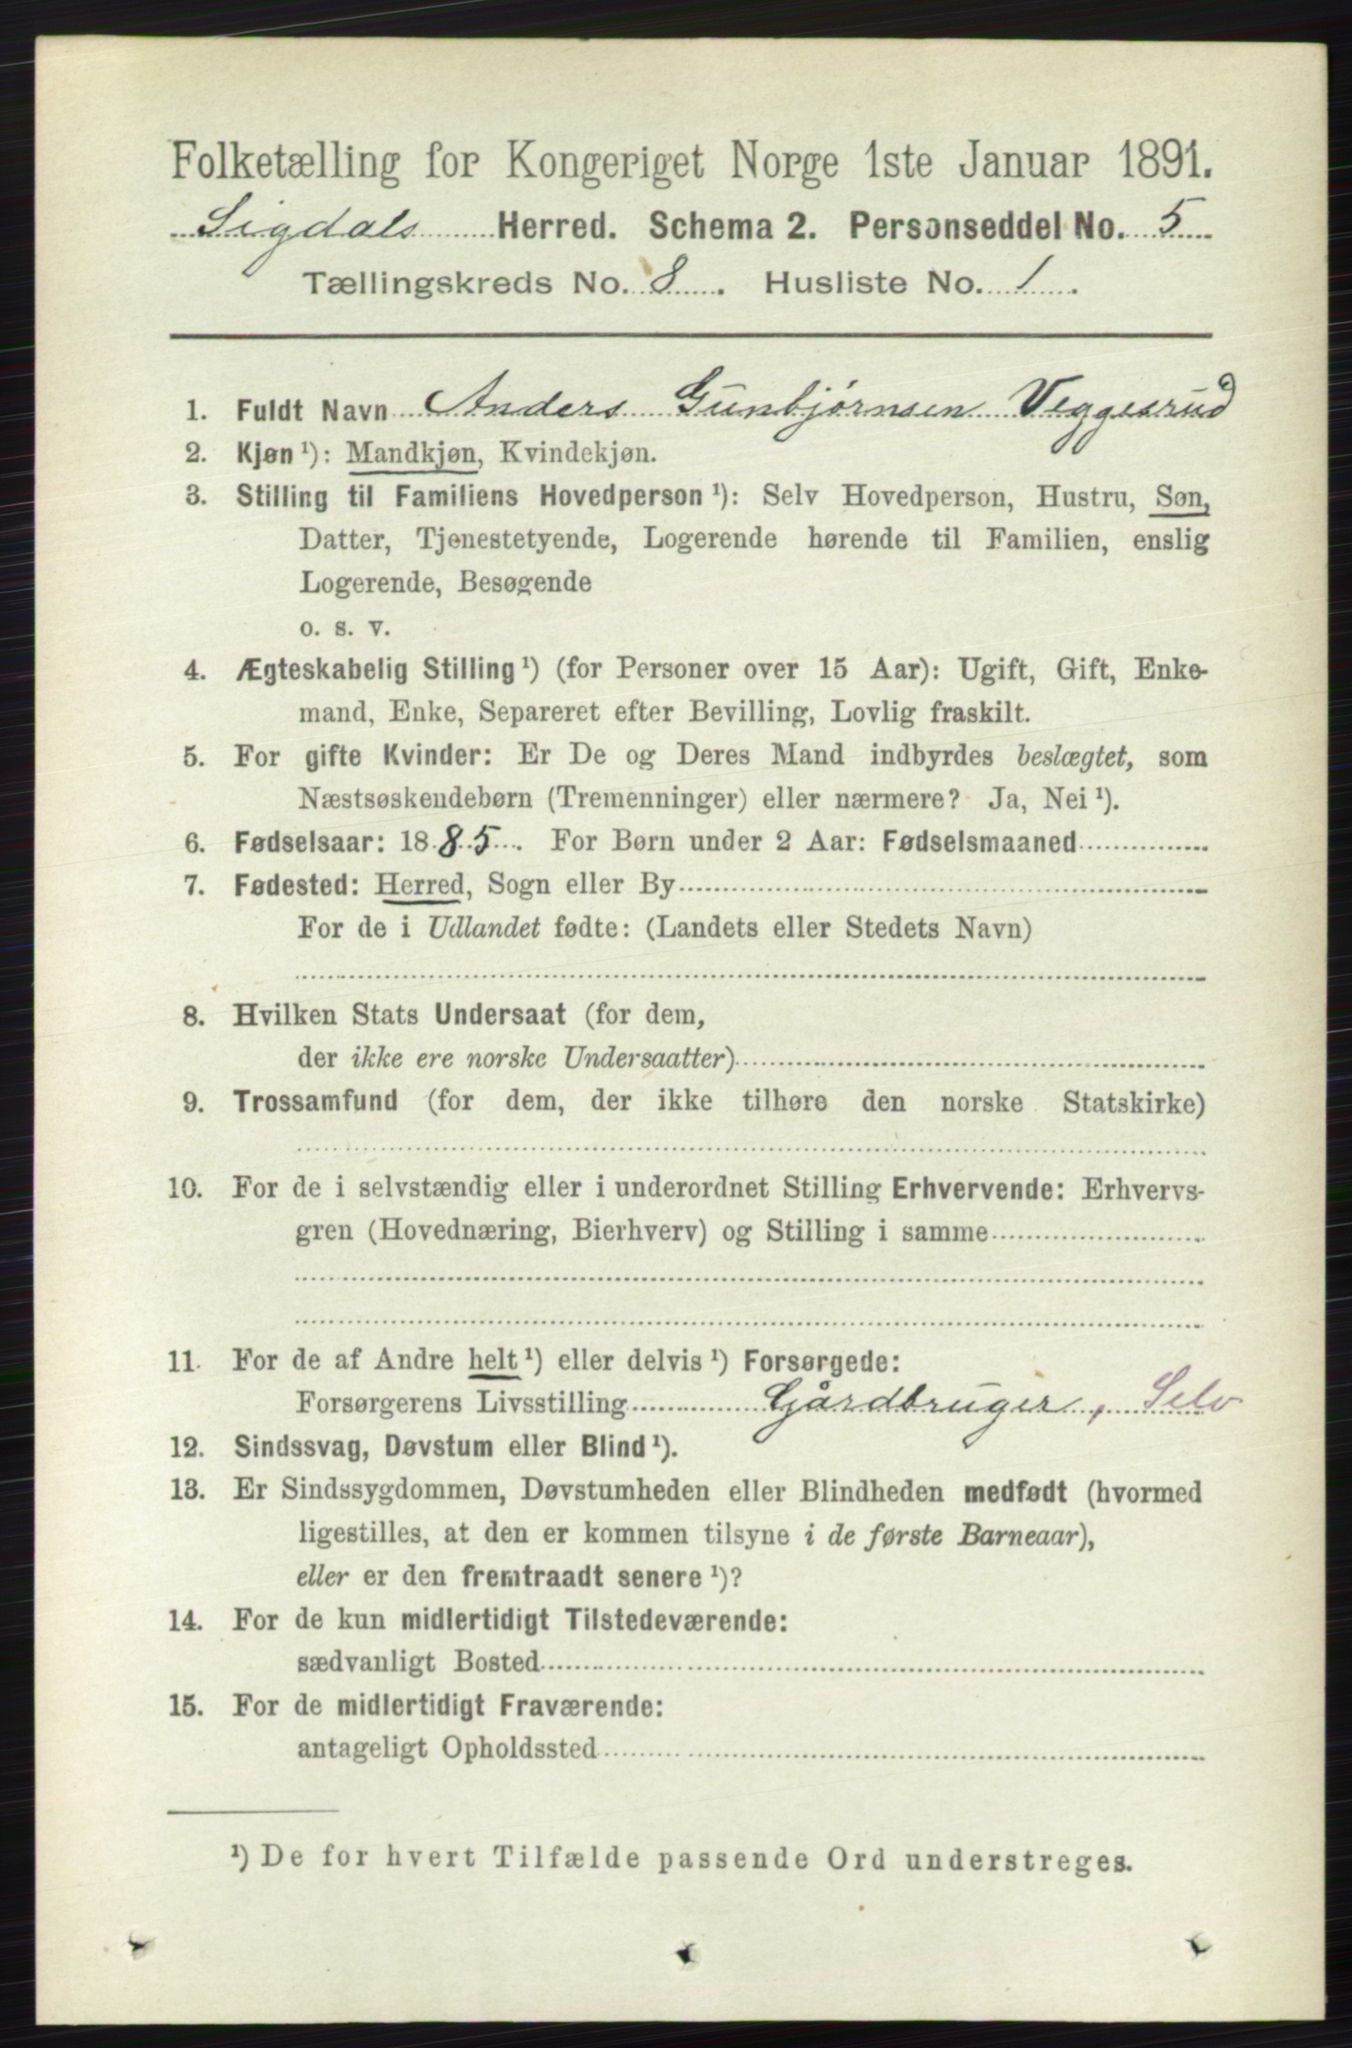 Folketælling for Kongeriget Norge 1ste Januar 1891.
Sigdals Herred. Schema 2. Personseddel No. 5
Tællingskreds No. 8. Husliste No. 1.
1. Fuldt Navn Anders Gunbjørnsen Veggesrud
2. Kjøn ¹): Mandkjøn, Kvindekjøn.
3. Stilling til Familiens Hovedperson ¹): Selv Hovedperson, Hustru, Søn,
Datter, Tjenestetyende, Logerende hørende til Familien, enslig
Logerende, Besøgende
o. s. v.
4. Ægteskabelig Stilling ¹) (for Personer over 15 Aar): Ugift, Gift, Enke-
mand, Enke, Separeret efter Bevilling, Lovlig fraskilt.
5. For gifte Kvinder: Er De og Deres Mand indbyrdes beslægtet, som
Næstsøskendebørn (Tremenninger) eller nærmere? Ja, Nei ¹).
6. Fødselsaar: 1885. For Børn under 2 Aar: Fødselsmaaned
7. Fødested: Herred, Sogn eller By
For de i Udlandet fødte: (Landets eller Stedets Navn)
8. Hvilken Stats Undersaat (for dem,
der ikke ere norske Undersaatter)
9. Trossamfund (for dem, der ikke tilhøre den norske Statskirke)
10. For de i selvstændig eller i underordnet Stilling Erhvervende: Erhvervs-
gren (Hovednæring, Bierhverv) og Stilling i samme
11. For de af Andre helt ¹) eller delvis ¹) Forsørgede:
Forsørgerens Livsstilling Gårdbruger, Selv
12. Sindssvag, Døvstum eller Blind ¹).
13. Er Sindssygdommen, Døvstumheden eller Blindheden medfødt (hvormed
ligestilles, at den er kommen tilsyne i de første Barneaar),
eller er den fremtraadt senere ¹)?
14. For de kun midlertidigt Tilstedeværende:
sædvanligt Bosted
15. For de midlertidigt Fraværende:
antageligt Opholdssted
¹) De for hvert Tilfælde passende Ord understreges.